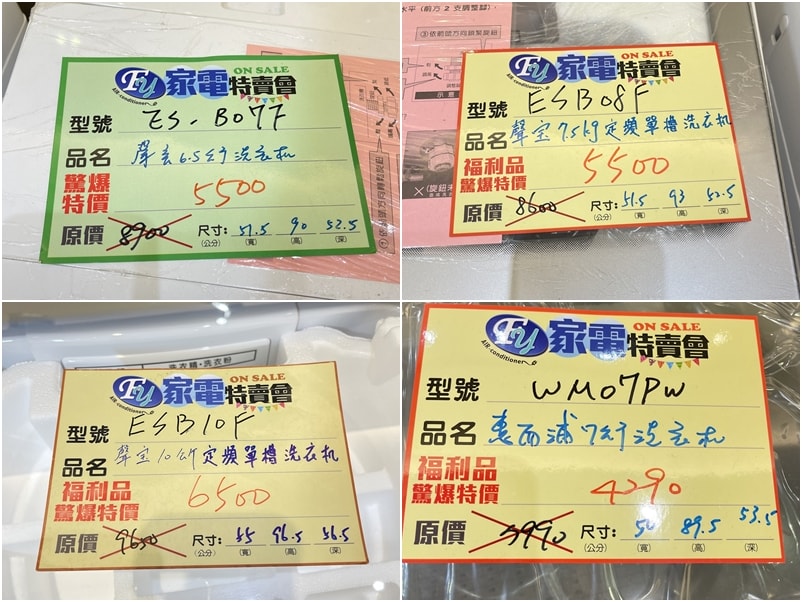 FY 家電特賣會
ON SALE
AIR-conditioner
型號 ES-B07F
品名 聲宝6.5公斤洗衣机
驚爆特價 5500
原價 8900 尺寸: 51.5 90 52.5
(公分) (寬) (高) (深)
水平(前方2支調整腳)
③依箭頭方向鎖緊旋鈕
FY 家電特賣會
ON SALE
AIR-conditioner
型號 ESB08F
品名 聲宝7.5kg定頻單槽洗衣机
福利品
驚爆特價 5500
原價 8600 尺寸: 51.5 93 52.5
(公分) (寬) (高) (深)
洗衣精・洗衣粉
FY 家電特賣會
ON SALE
AIR-conditioner
型號 ESB10F
品名 聲宝10公斤定頻單槽洗衣机
福利品
驚爆特價 6500
原價 9650 尺寸: 55 96.5 56.5
(公分) (寬) (高) (深)
FY 家電特賣會
ON SALE
AIR-conditioner
型號 WM07PW
品名 惠而浦7公斤洗衣机
福利品
驚爆特價 4290
原價 5990 尺寸: 50 89.5 53.5
(公分) (寬) (高) (深)